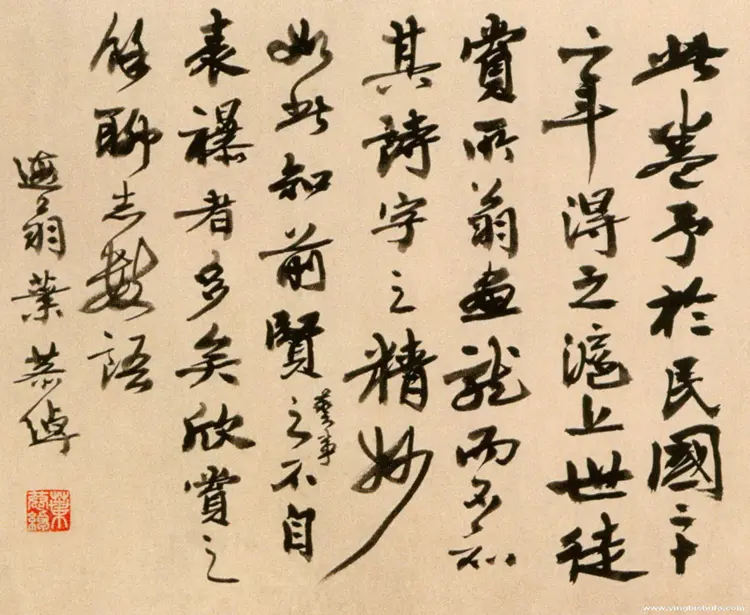 此卷予於民國二十
二年得之滬上世徒
賞所翁畫龍而不知
其詩字之精妙
如此知前賢藝事之不自
表襮者多矣欣賞之
餘聊志數語
遐翁葉恭綽
葉恭綽
www.yingbishufa.com